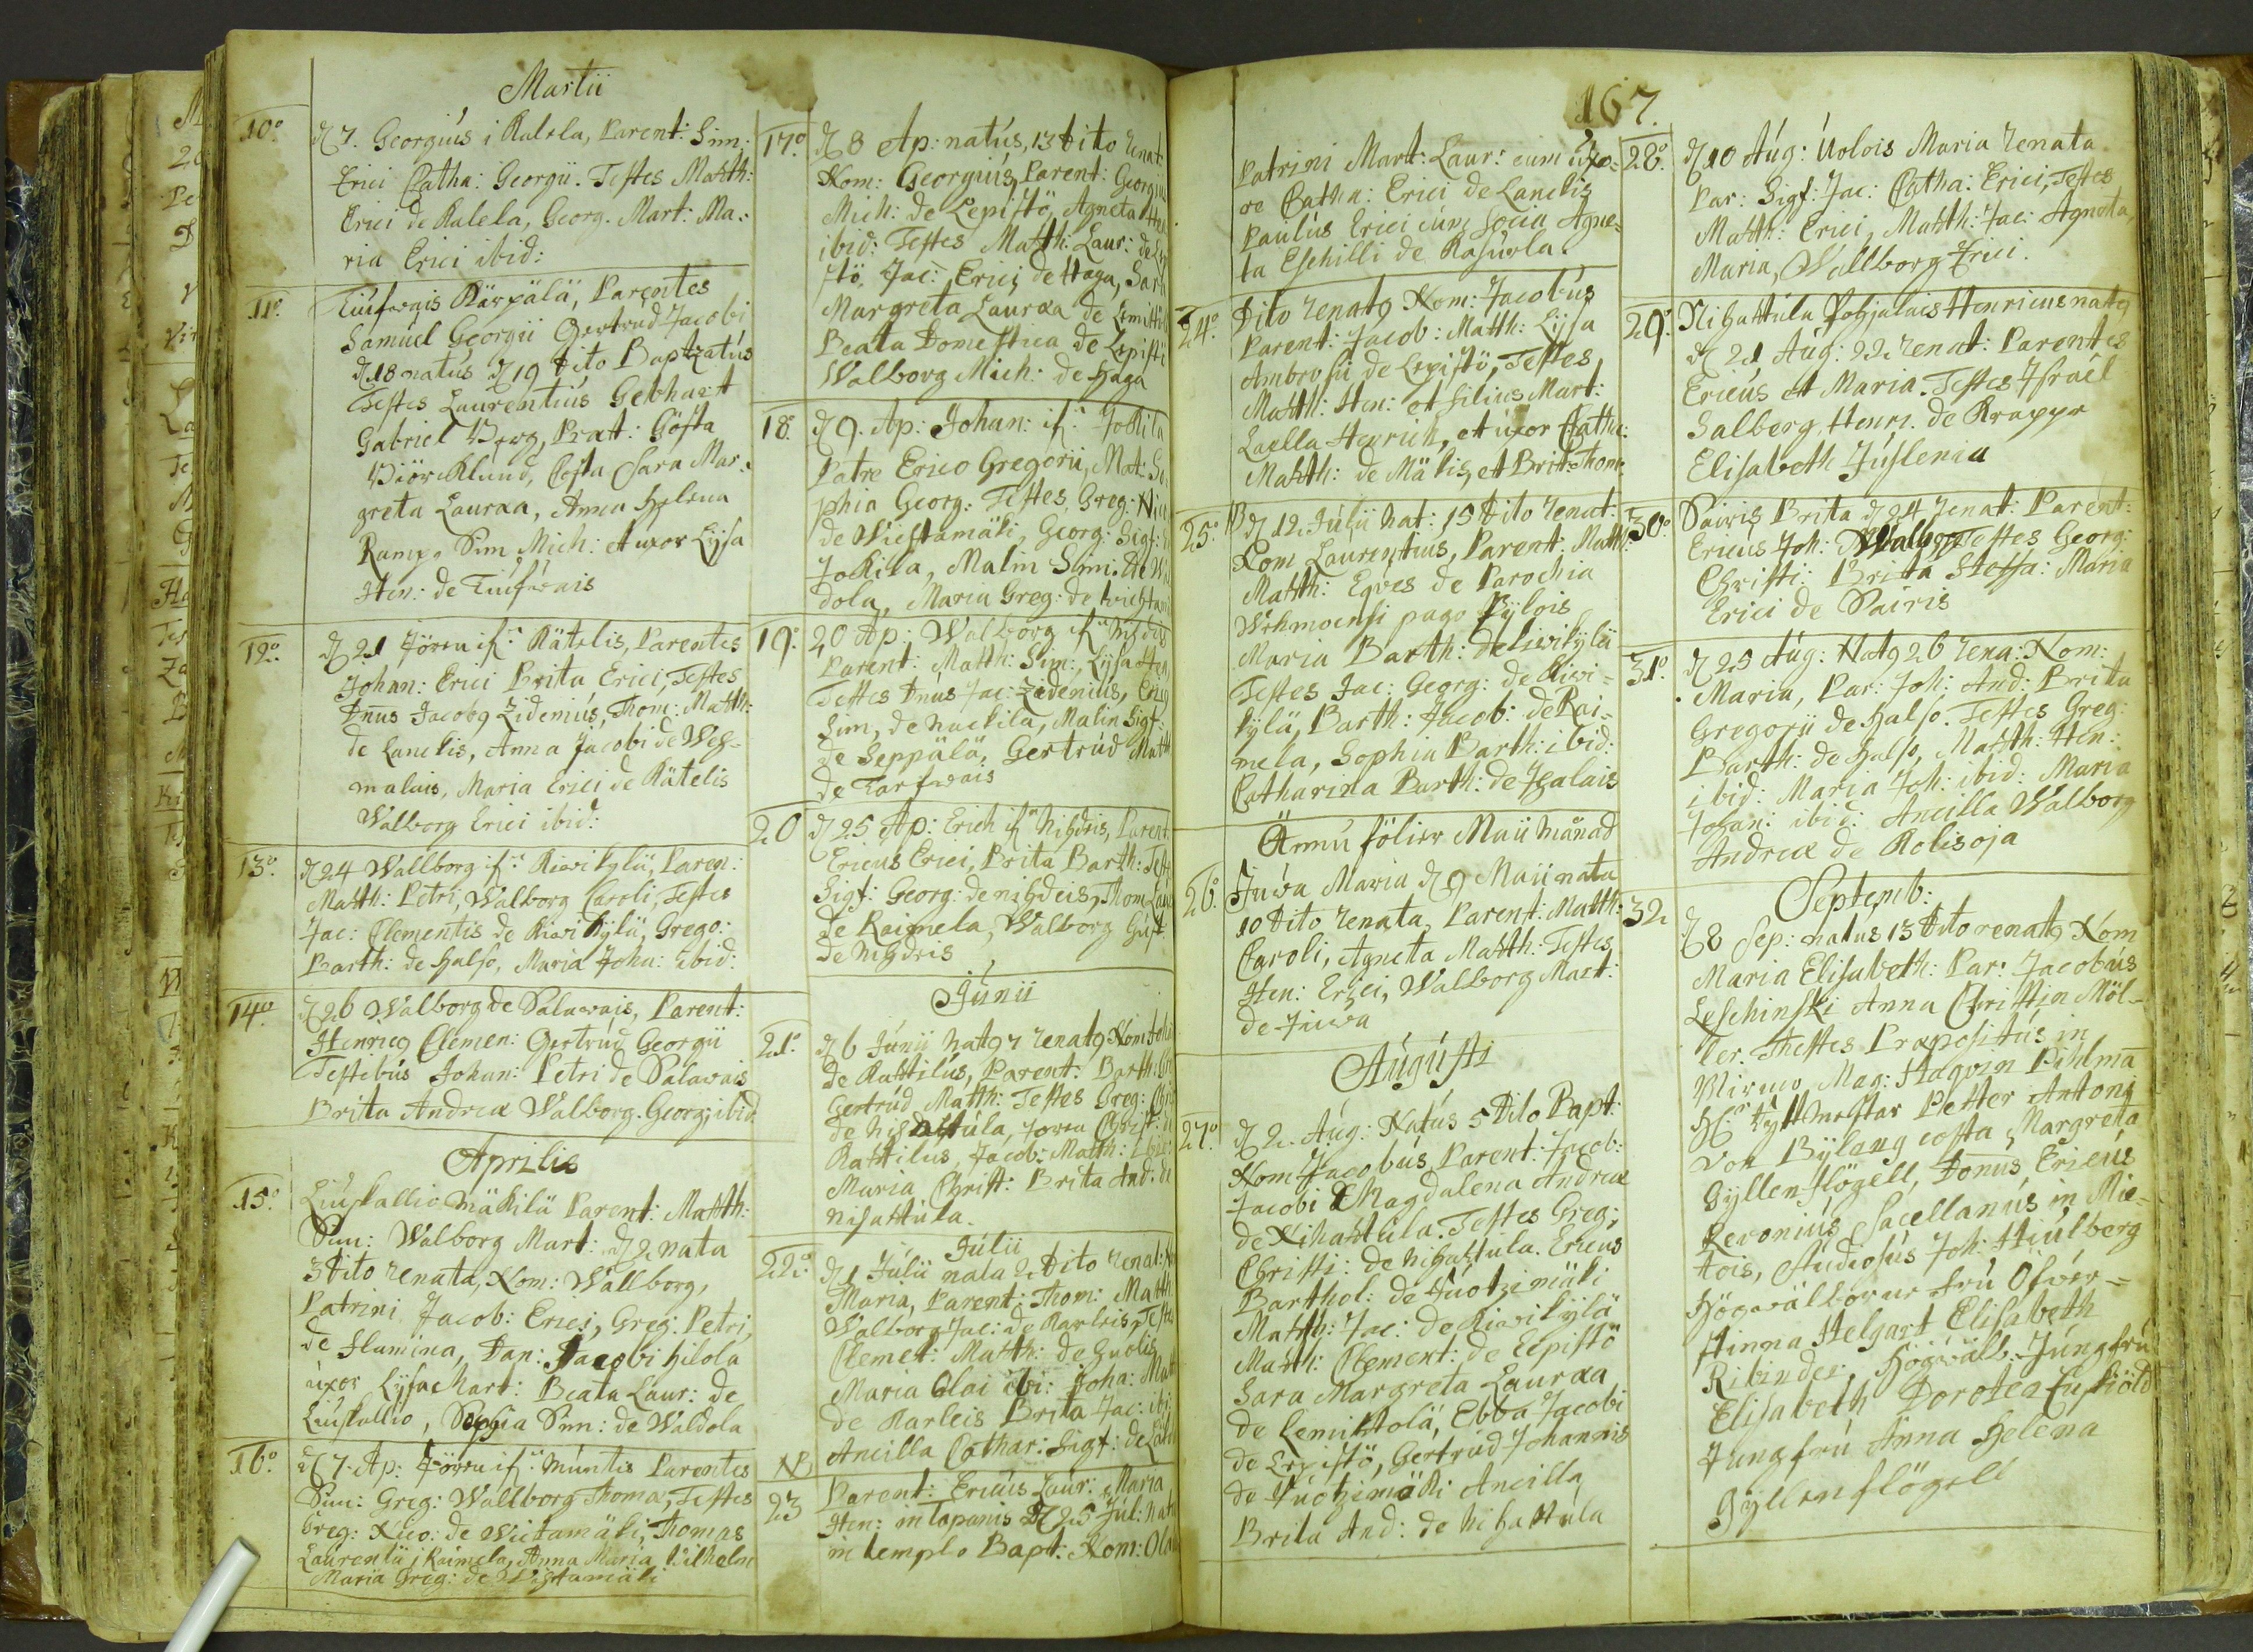 Martii
10.º d 7. Georgius i Kalela, Parent: Sim:
Erici Catha: Georgii. Testes Matth:
Erici de Kalela, Georg. Mart: Ma:
ria Erici ibid:
11.º Tiufwais Kärpälä, Parentes
Samuel Georgii Gertrud Jacobi
d 18 natus d 19 Dito Baptzatus
Testes Laurentius Gebhart
Gabriel Berg, Præt: Gösta
Biörcklund, Costa Sara Mar:
greta Lauræa, Anna Helena
Ramp. Sim Mich: et uxor Lijsa
Hen: de Tiufwais
12.º d 21 Jören if: Kätelis, Parentes
Johan: Erici Brita Erici, Testes
Dnus Jacobg Zidenius, Thom: Matth:
de Lanckis, Anna Jacobi de Weh-
malais, Maria Erici de Kätelis
Walborg Erici ibid:
13.º d 24 Wallborg if: Kiwikylä, Paren:
Matth: Petri, Walborg Caroli, Testes
Jac: Clementis de Kiwikylä, Grego:
Barth: de halso, Maria Joha: ibid:
14.º d 26 Walborg de Salawais, Parent:
Henricg Clemen: Gertrud Georgii
Testibus Johan: Petri de Salawais
Brita Andreæ Walborg. Georg: ibid.
Aprilis
15.º Liuskallio Mäkilä Parent: Matth:
Sim: Walborg Mart: d 2 nata
3 Dito renata, Nom: Wallborg,
Patrini Jacob: Erici, Greg: Petri,
de Humina, Dan: Jacobi hilola
uxor Lijsa Mart: Beata Laur: de
Liuskallio, Sophia Sim: de Waldola
16.º d 7. Ap: Jören if: Muntis Parentes
Sim: Greg: Wallborg Thomæ, Testes
Greg: Nico: de Wictamäki, Thomas
Laurentii i Raimela, Anna Maria Wilhelm
Maria Greg: de Wihtamäki
17.º d 8 Ap: natus, 13 Dito renat
Nom: Georgius, Parent: Georgius
Mich: de Lepistö, Agneta
ibid: Testes Matth: Laur: de Lepi
stö, Jac: Erici de Haga, Sara
Margreta Lauræa de Lemittä
Beata Domestica de Lepistö
Walborg Mich: de Haga
18. d 9. Ap: Johan: if: Jokila
Patre Erico Gregorii, Mat: So
phia Georg: Testes, Greg: Nico
de Wichtamäki, Georg: Sigf:
Jokila, Malin Sim: de Wal
dola, Maria Greg: de Wichtam
19.º 20 Ap: Walborg if: Nihdis
Parent: Matth: Sim:, Lijsa Hen
Testes Dnus Jac: Zidenius, Ericg
Sim, de Nackila, Malin Sigf:
de Seppälä, Gertrud Matth
de Tarfwais
20 d 25 Ap: Erich if: Nihdris, Parent
Ericus Erici, Brita Barth: Teste
Sigf: Georg: de Nihdeis, Thom: Lau
de Raimela, Walborg Gust:
de Nihdris
Junii
21.º d 6 Junii Natg 7 renatg Nom: Joha
de Kattilus, Parent: Barth:
Gertrud Matth: Testes Greg: Chri
de Nihattula, Jören Christ:
Kattilus, Jacob: Matth: ibid:
Maria Christ: Brita And: de
Nihattula.
Julii
22.º d 1 Julii nata 2 Dito renat:
Maria, Parent: Thom: Matth
Walborg Jac: de Karleis, Testes
Clemet: Matth: de Huolis
Maria Olai ibi: Joha: Matt
de Karleis Brita Jac: ibi
Ancilla Cathar: Sigf: de
NB
23 Parent: Ericus Laur: Maria
Hen: in Tapanis d 25 Jul: natu
in templo Bapt: Nom: Ola
167.
Patrini Mart: Laur: cum uxo-
re Catha: Erici de Lanckis
Paulus Erici cum socia Agne-
ta Eschilli de Kasurla.
24.º Dito renatg Nom: Jacobus
Parent: Jacob: Matth: Lijsa
Ambrosii de Lepistö, Testes
Matth: Hen: et filius Mart:
Laella Henrich, et uxor Catha:
Matth: de Mäkis, et Brit: Thom:
25.º d 12. Julii Nat: 15 Dito renat:
Nom Laurentius, Parent: Matth:
Matth: Eqves de Parochia
Wehmoensi pago Pylois
Maria Barth: de Kiwikylä
Testes Jac: Georg: de Kiwi-
kylä, Barth: Jacob: de Rai-
mela, Sophia Barth: ibid:
Catharina Barth: de Jhalais
Ännu följer Maii Månad
26.º Juwa Maria d 9 Maii nata
10 Dito renata, Parent: Matth:
Caroli, Agneta Matth: Testes
Hen: Erici, Walborg Mart:
de Juwa
Augusti
27.º d 2. Aug: Natus 5 Dito Bapt:
Nom Jacobus Parent: Jacob:
Jacobi Magdalena Andreæ
de Nihattula. Testes Greg:
Christi: de Nihattula. Ericus
Barthol: de Tuotzimäki
Matth: Jac: de Kiwikylä
Matth: Clement: de Lepistö
Sara Margreta Lauræa
de Lemittolä, Ebba Jacobi
de Lepistö, Gertrud Johannis
de Tuotzimäki Ancilla
Brita And: de Nihattula
28.º d 10 Aug: Uolois Maria renata
Par: Sigf: Jac: Catha: Erici, Testes
Matth: Erici, Matth: Jac: Agneta,
Maria, Wallborg Erici.
29.º Nihattula Pohjalais Henricus natg
d 21 Aug: 22 renat: Parentes
Ericus et Maria. Testes Israel
Salberg, Henr. de Krappe
Elisabeth Juslenia
30.º Sairis Brita d 24 renat: Parent:
Ericus Joh: Walborg Testes Georg:
Christi: Brita Steffa: Maria
Erici de Sairis
31.º d 25 Aug: Natg 26 rena: Nom:
Maria, Par: Joh: And: Brita
Gregorii de halso. Testes Greg:
Barth: de halso, Matth: Hen:
ibid: Maria Joh: ibid: Maria
Johan: ibid: Ancilla Walborg
Andreæ de Kolisoja
Septemb:
32 d 8 Sep: natus 13 Dito renatg Nom
Maria Elisabeth: Par: Jacobus
Leschinski Anna Christin Möl-
ler. Thestes Præpositus in
Virmo, Mag: Haqvin Pihlman
H: Rytmestar Petter Antoni
von Bylang costa Margreta
Gyllenflögell, Donus Ericus
Revonius Sacellanus in Mie-
tois, Studiosus Joh: Hiulberg
Högwälborne fru Öfver-
stinna Helgart Elisabeth
Ribinder, Högwälb: Jungfru
Elisabeth Dorotea Cuskiöld
Jungfru Anna Helena
Gyllenflögell